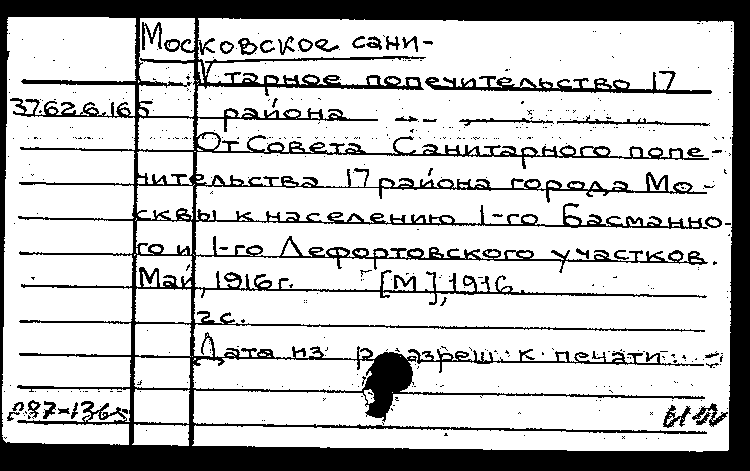 Московское сани-
тарное попечительство 17
37.62.6.165 района
От Совета Санитарного попе-
чительства 17 района города Мо-
сквы к населению 1-го Басманно-
го и 1-го Лефортовского участков.
Май, 1916 г. [М], 1916.
2 с.
Дата из разреш. к печати
р87-1365